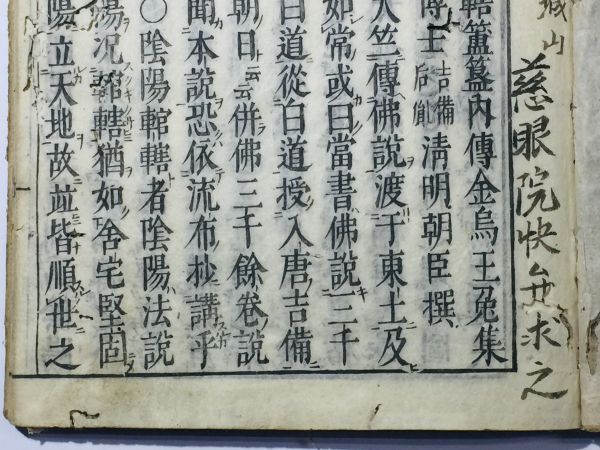 城山
慈眼院快弁求之
轄簠簋内傳金烏玉兔集
博士吉備后胤清明朝臣撰
天竺傳佛說渡于東土及
如常或曰當書佛說三千
白道從白道授入唐吉備
朝日云云併佛三千餘卷說
聞本說恐依流布抄講乎
○陰陽輨轄者陰陽法說
陽況輨轄猶如舍宅堅固
陽立天地故並皆順世之